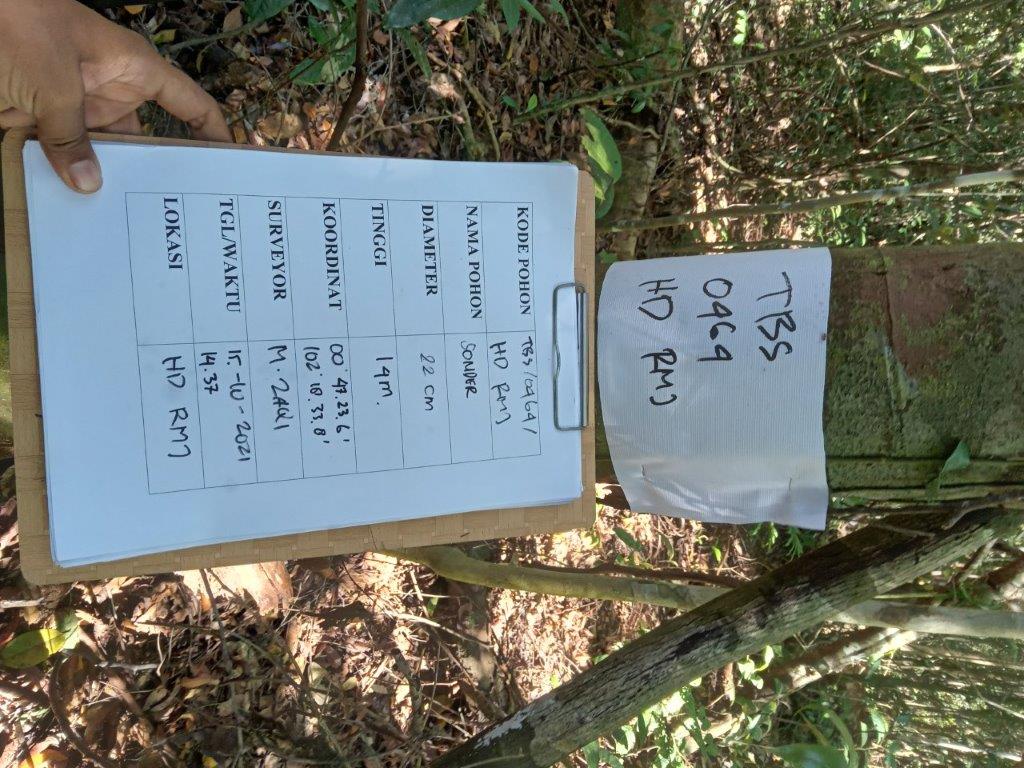 TBS
0464
HD RMJ
KODE POHON TBS/0464/
HD RMJ
NAMA POHON SONDER
DIAMETER 22 cm
TINGGI 14m.
KOORDINAT 00° 47.23.6'
102° 18.33.8'
SURVEYOR M. ZAKI
TGL/WAKTU 15 -10 - 2021
14.37
LOKASI HD RMJ